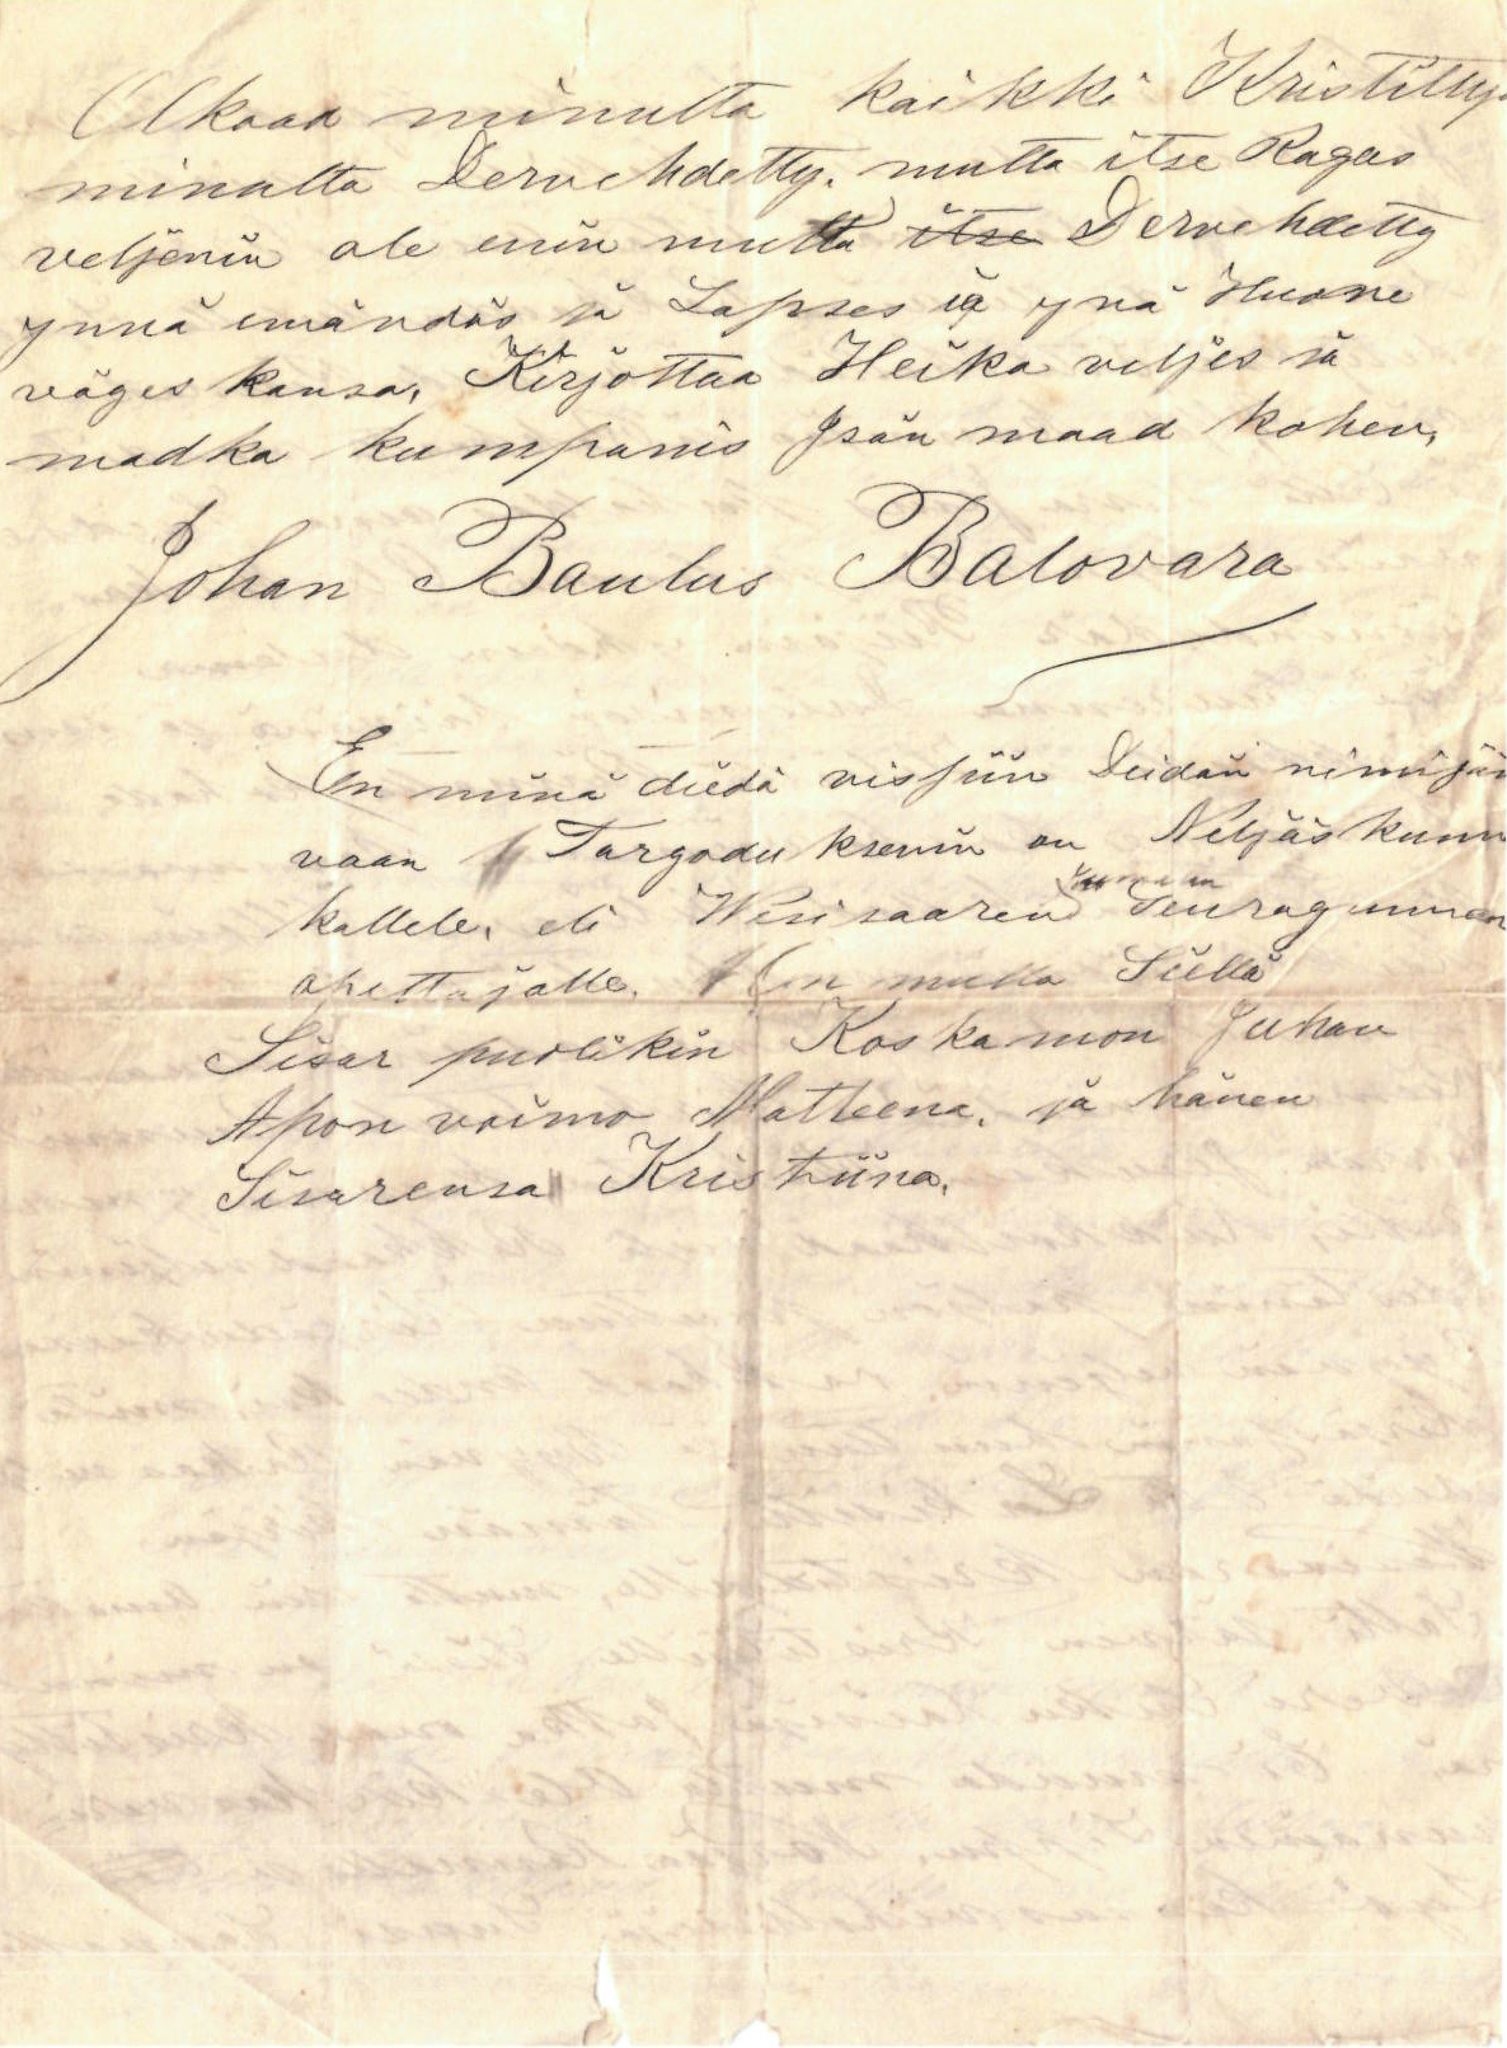 Olkaad minulta kaikki Kristilly
minulta Dervehdetty. mutta itse Ragas
veljeniu ole eniu mutta itse Dervehdetty
ynnä emändäs jä Lapses ja ynä Huone
väges kansa, Kirjottaa Heika veljes jä
madka kumpanis Jsän maad kohen,
Johan Baulus Balovara
En minä diedä visjiin Deidän nimijän
vaan Targoduksenin on Neljäs kunn
kallele, eli Wesisaaren Seuragunnan
ohettajalle. On mulla Siellä
Sisar puolikin Koskamon Juhan
Apon vaimo Matleena. jä hänen
Sisarensa Kristiina.